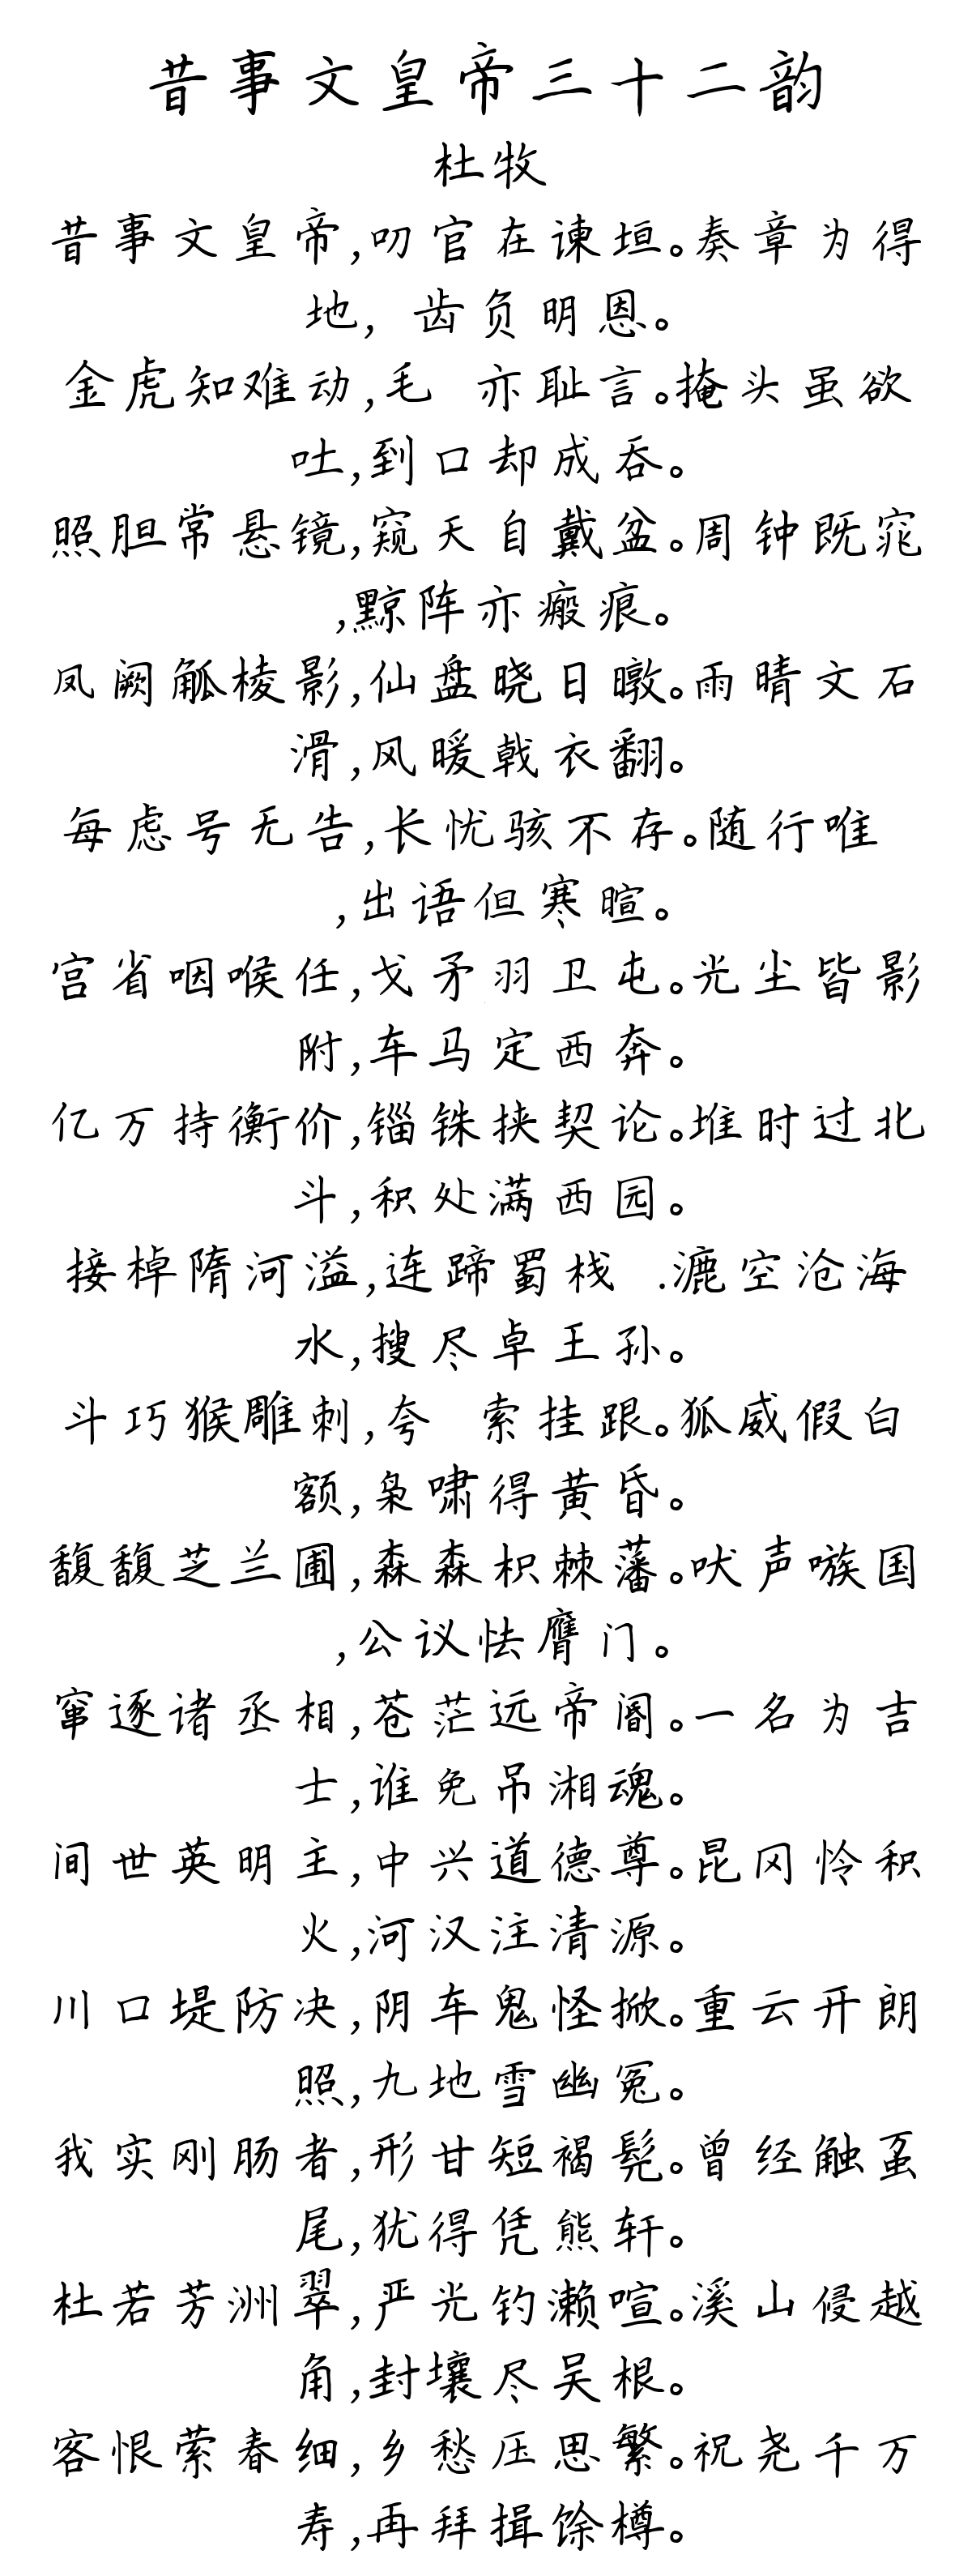 昔事文皇帝三十二韵
杜牧
昔事文皇帝,叨官在谏垣。奏章为得
地, 齿负明恩。
金虎知难动,毛 亦耻言。掩头虽欲
吐,到口却成吞。
照胆常悬镜,窥天自戴盆。周钟既窕
,黥阵亦瘢痕。
凤阙觚棱影,仙盘晓日暾。雨晴文石
滑,风暖戟衣翻。
每虑号无告,长忧骇不存。随行唯
,出语但寒暄。
宫省咽喉任,戈矛羽卫屯。光尘皆影
附,车马定西奔。
亿万持衡价,锱铢挟契论。堆时过北
斗,积处满西园。
接棹隋河溢,连蹄蜀栈 .漉空沧海
水,搜尽卓王孙。
斗巧猴雕刺,夸 索挂跟。狐威假白
额,枭啸得黄昏。
馥馥芝兰圃,森森枳棘藩。吠声嗾国
,公议怯膺门。
窜逐诸丞相,苍茫远帝阍。一名为吉
士,谁免吊湘魂。
间世英明主,中兴道德尊。昆冈怜积
火,河汉注清源。
川口堤防决,阴车鬼怪掀。重云开朗
照,九地雪幽冤。
我实刚肠者,形甘短褐髡。曾经触虿
尾,犹得凭熊轩。
杜若芳洲翠,严光钓濑喧。溪山侵越
角,封壤尽吴根。
客恨萦春细,乡愁压思繁。祝尧千万
寿,再拜揖馀樽。